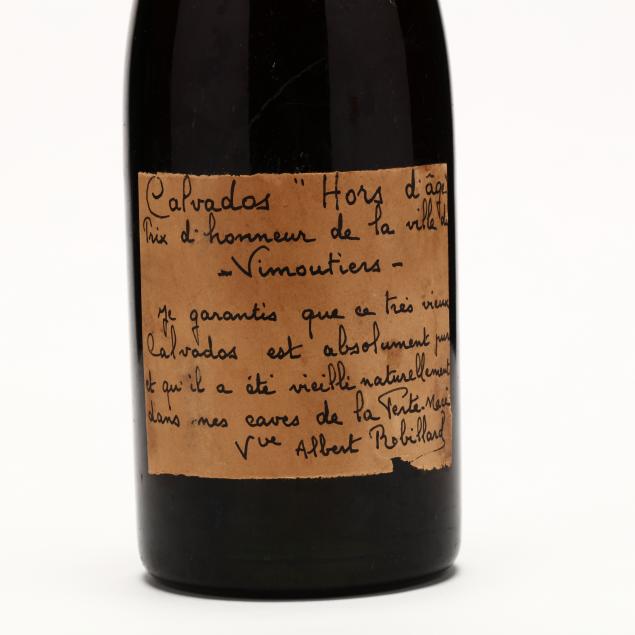 Calvados "Hors d'âge
Prix d'honneur de la ville de
- Vimoutiers -
Je garantis que ce très vieux
Calvados est absolument pur
et qu'il a été vieilli naturellement
dans mes caves de la Ferté-Macé
Vve Albert Robillard